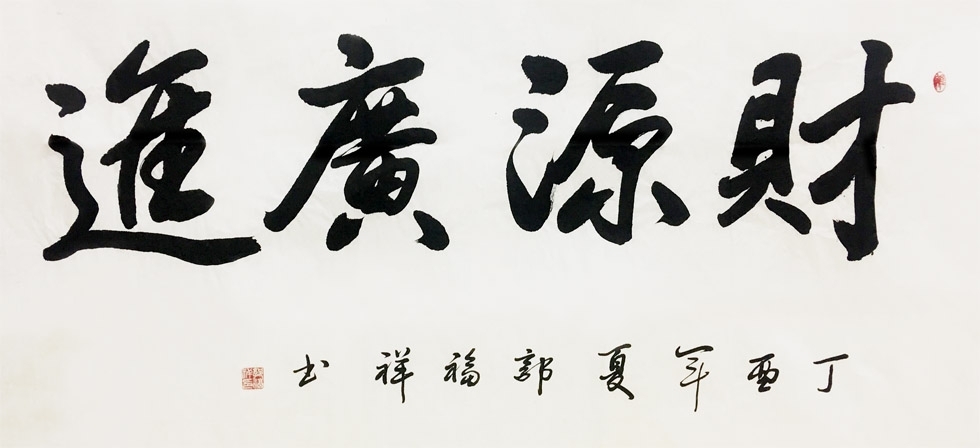 財源廣進
丁酉年夏郭福祥书